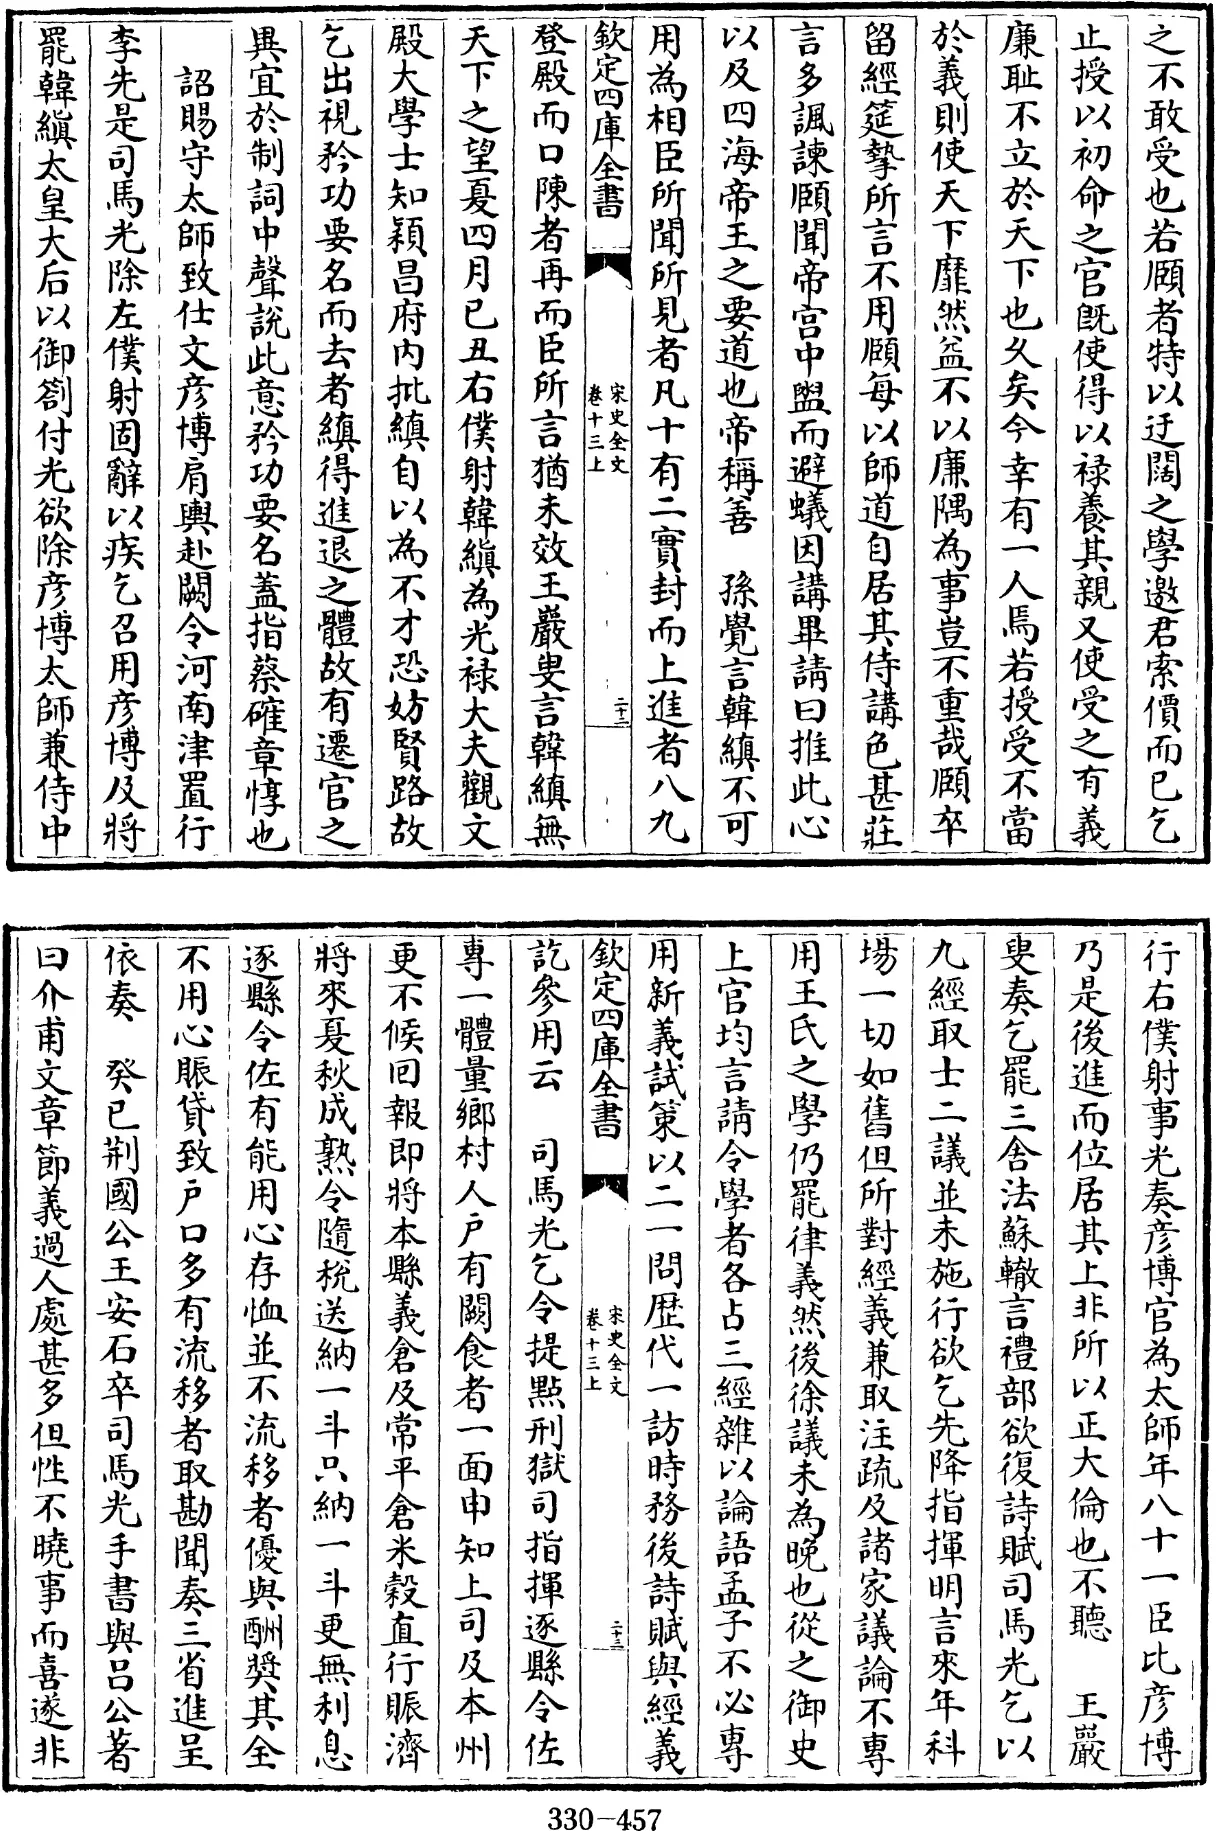 之不敢受也若頤者特以迂闊之學邀君索價而已乞
止授以初命之官旣使得以禄養其親又使受之有義
廉耻不立於天下也久矣今幸有一人焉若授受不當
於義則使天下靡然益不以廉隅為事豈不重哉頤卒
留經筵摯所言不用頤每以師道自居其侍講色甚莊
言多諷諫頤聞帝宫中盥而避蟻因講畢請曰推此心
以及四海帝王之要道也帝稱善　孫覺言韓縝不可
用為相臣所聞所見者凡十有二實封而上進者八九
欽定四庫全書
宋史全文
卷十三上
二十二
登殿而口陳者再而臣所言猶未效王巖叟言韓縝無
天下之望夏四月己丑右僕射韓縝為光禄大夫觀文
殿大學士知潁昌府内批縝自以為不才恐妨賢路故
乞出視矜功要名而去者縝得進退之體故有遷官之
異宜於制詞中聲說此意矜功要名蓋指蔡確章惇也
詔賜守太師致仕文彦博肩輿赴闕令河南津置行
李先是司馬光除左僕射固辭以疾乞召用彦博及將
罷韓縝太皇大后以御劄付光欲除彦博太師兼侍中
行右僕射事光奏彦博官為太師年八十一臣比彦博
乃是後進而位居其上非所以正大倫也不聽　王巖
叟奏乞罷三舍法蘇轍言禮部欲復詩賦司馬光乞以
九經取士二議並未施行欲乞先降指揮明言來年科
場一切如舊但所對經義兼取注疏及諸家議論不專
用王氏之學仍罷律義然後徐議未為晩也從之御史
上官均言請令學者各占三經雜以論語孟子不必專
用新義試策以二一問歴代一訪時務後詩賦與經義
欽定四庫全書
宋史全文
卷十三上
二十三
訖參用云　司馬光乞令提點刑獄司指揮逐縣令佐
專一體量鄉村人户有闕食者一面申知上司及本州
更不候回報即將本縣義倉及常平倉米穀直行賑濟
將來夏秋成熟令隨稅送納一斗只納一斗更無利息
逐縣令佐有能用心存恤並不流移者優與酬奬其全
不用心賑貸致户口多有流移者取勘聞奏三省進呈
依奏　癸巳荆國公王安石卒司馬光手書與吕公著
曰介甫文章節義過人處甚多但性不曉事而喜遂非
330-457